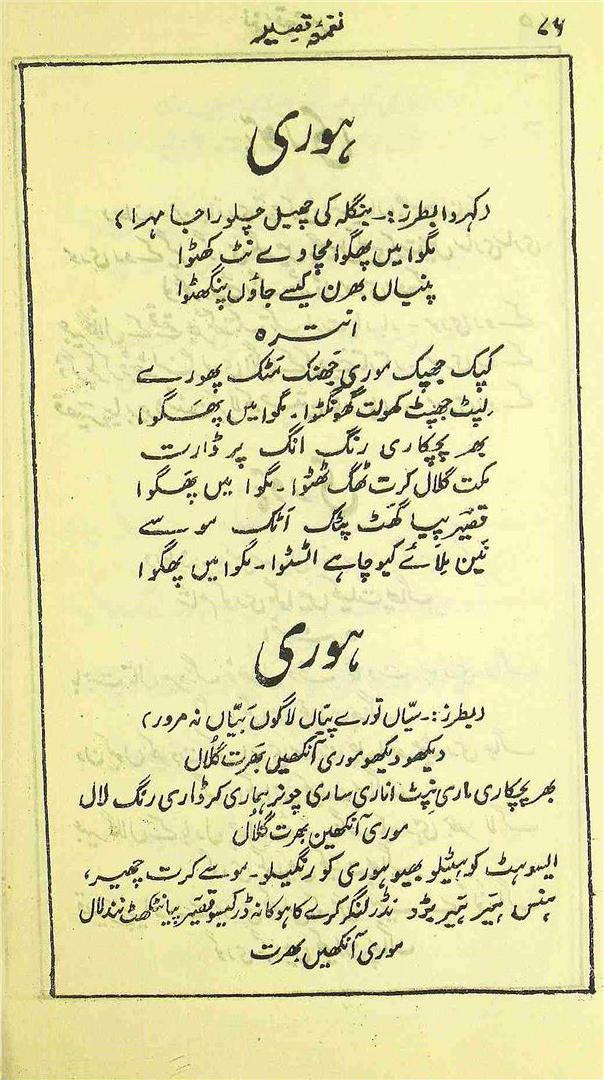 ۷۶ نغمۂ قصیر
ہوری
(کہروا بطرز:۔ بنگلہ کی چھیل چلو راجا مہرا)
مگوا میں پھگوا مچاوے نٹ کھٹوا
پنیاں بھرن کیسے جاؤں پنگھٹوا
انترہ
لپک جھپک موری جَھٹک مَٹک پھورے
لپٹ جھپٹ کھولت گھونگٹوا۔ مگوا میں پھگوا
بھر پچکاری رنگ انگ پر ڈارت
مکت گلال کرت ٹھگ ٹھٹوا۔ مگوا میں پھگوا
قصیر پیا گھٹ پٹک اٹک موسے
نین ملائے کیو چاہے الٹٹوا۔ مگوا میں پھگوا
ہوری
(بطرز:۔ سیّاں تورے پیّاں لاگوں بیّاں نہ مرور)
دیکھو دیکھو موری آنکھیں بھرت گلال
بھر پچکاری ماری نپٹ اناری ساری چونر ہماری کر ڈاری رنگ لال
موری آنکھین بھرت گلال
ایسو ہٹ کو ہٹیلو بھیو ہوری کو رنگیلو۔ موسے کرت چھیر،
ہنس ہیر ہیر نڈر لنگر کرے کا ہو کا نہ ڈر کیسو قصیر پیا نٹکھٹ نند لال
موری آنکھیں بھرت